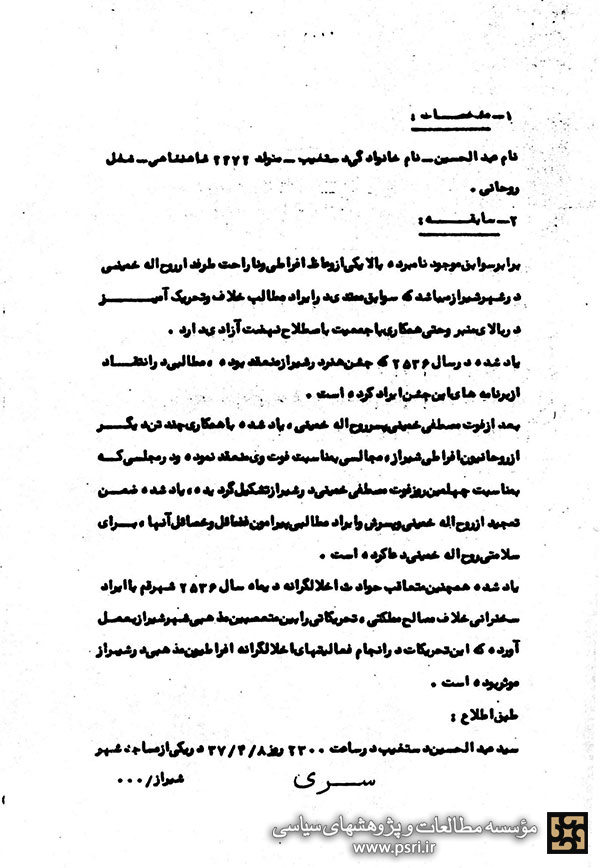 ۱ـ مشخصات :
نام عبدالحسین ـ نام خانوادگی دستغیب ـ متولد ۲۴۷۲ شاهنشاهی ـ شغل
روحانی .
۲ـ سابقه :
برابر سوابق موجود نامبرده بالا یکی از وعاظ افراطی و ناراحت طرفدار روح اله خمینی
در شهر شیراز میباشد که سوابق متعدد در ایراد مطالب خلاف و تحریک آمیز
در بالای منبر و حتی همکاری با جمعیت باصطلاح نهضت آزادی دارد .
یاد شده در سال ۲۵۳۶ که جشن هنر در شیراز منعقد بوده ، مطالبی در انتقاد
از برنامه های این جشن ایراد کرده است .
بعد از فوت مصطفی خمینی پسر روح اله خمینی ، یاد شده با همکاری چند تن دیگر
از روحانیون افراطی شیراز ، مجالسی بمناسبت فوت وی منعقد نموده و در مجلسی که
بمناسبت چهلمین روز فوت مصطفی خمینی در شیراز تشکیل گردیده ، یاد شده ضمن
تمجید از روح اله خمینی و پسرش و ایراد مطالبی پیرامون فضائل و خصائل آنها ، برای
سلامتی روح اله خمینی دعا کرده است .
یاد شده همچنین متعاقب حوادث اخلالگرانه دیماه سال ۲۵۳۶ شهر قم با ایراد
سخنرانی خلاف مصالح مملکتی ، تحریکاتی را بین متعصبین مذهبی شهر شیراز بعمل
آورده که این تحریکات در انجام فعالیتهای اخلالگرانه افراطیون مذهبی در شیراز
موثر بوده است .
طبق اطلاع :
سید عبدالحسین دستغیب در ساعت ۲۳۰۰ روز ۳۷/۴/۸ در یکی از مساجد شهر
شیراز/۰۰۰
سری
مؤسسه مطالعات و پژوهشهای سیاسی
www.psri.ir